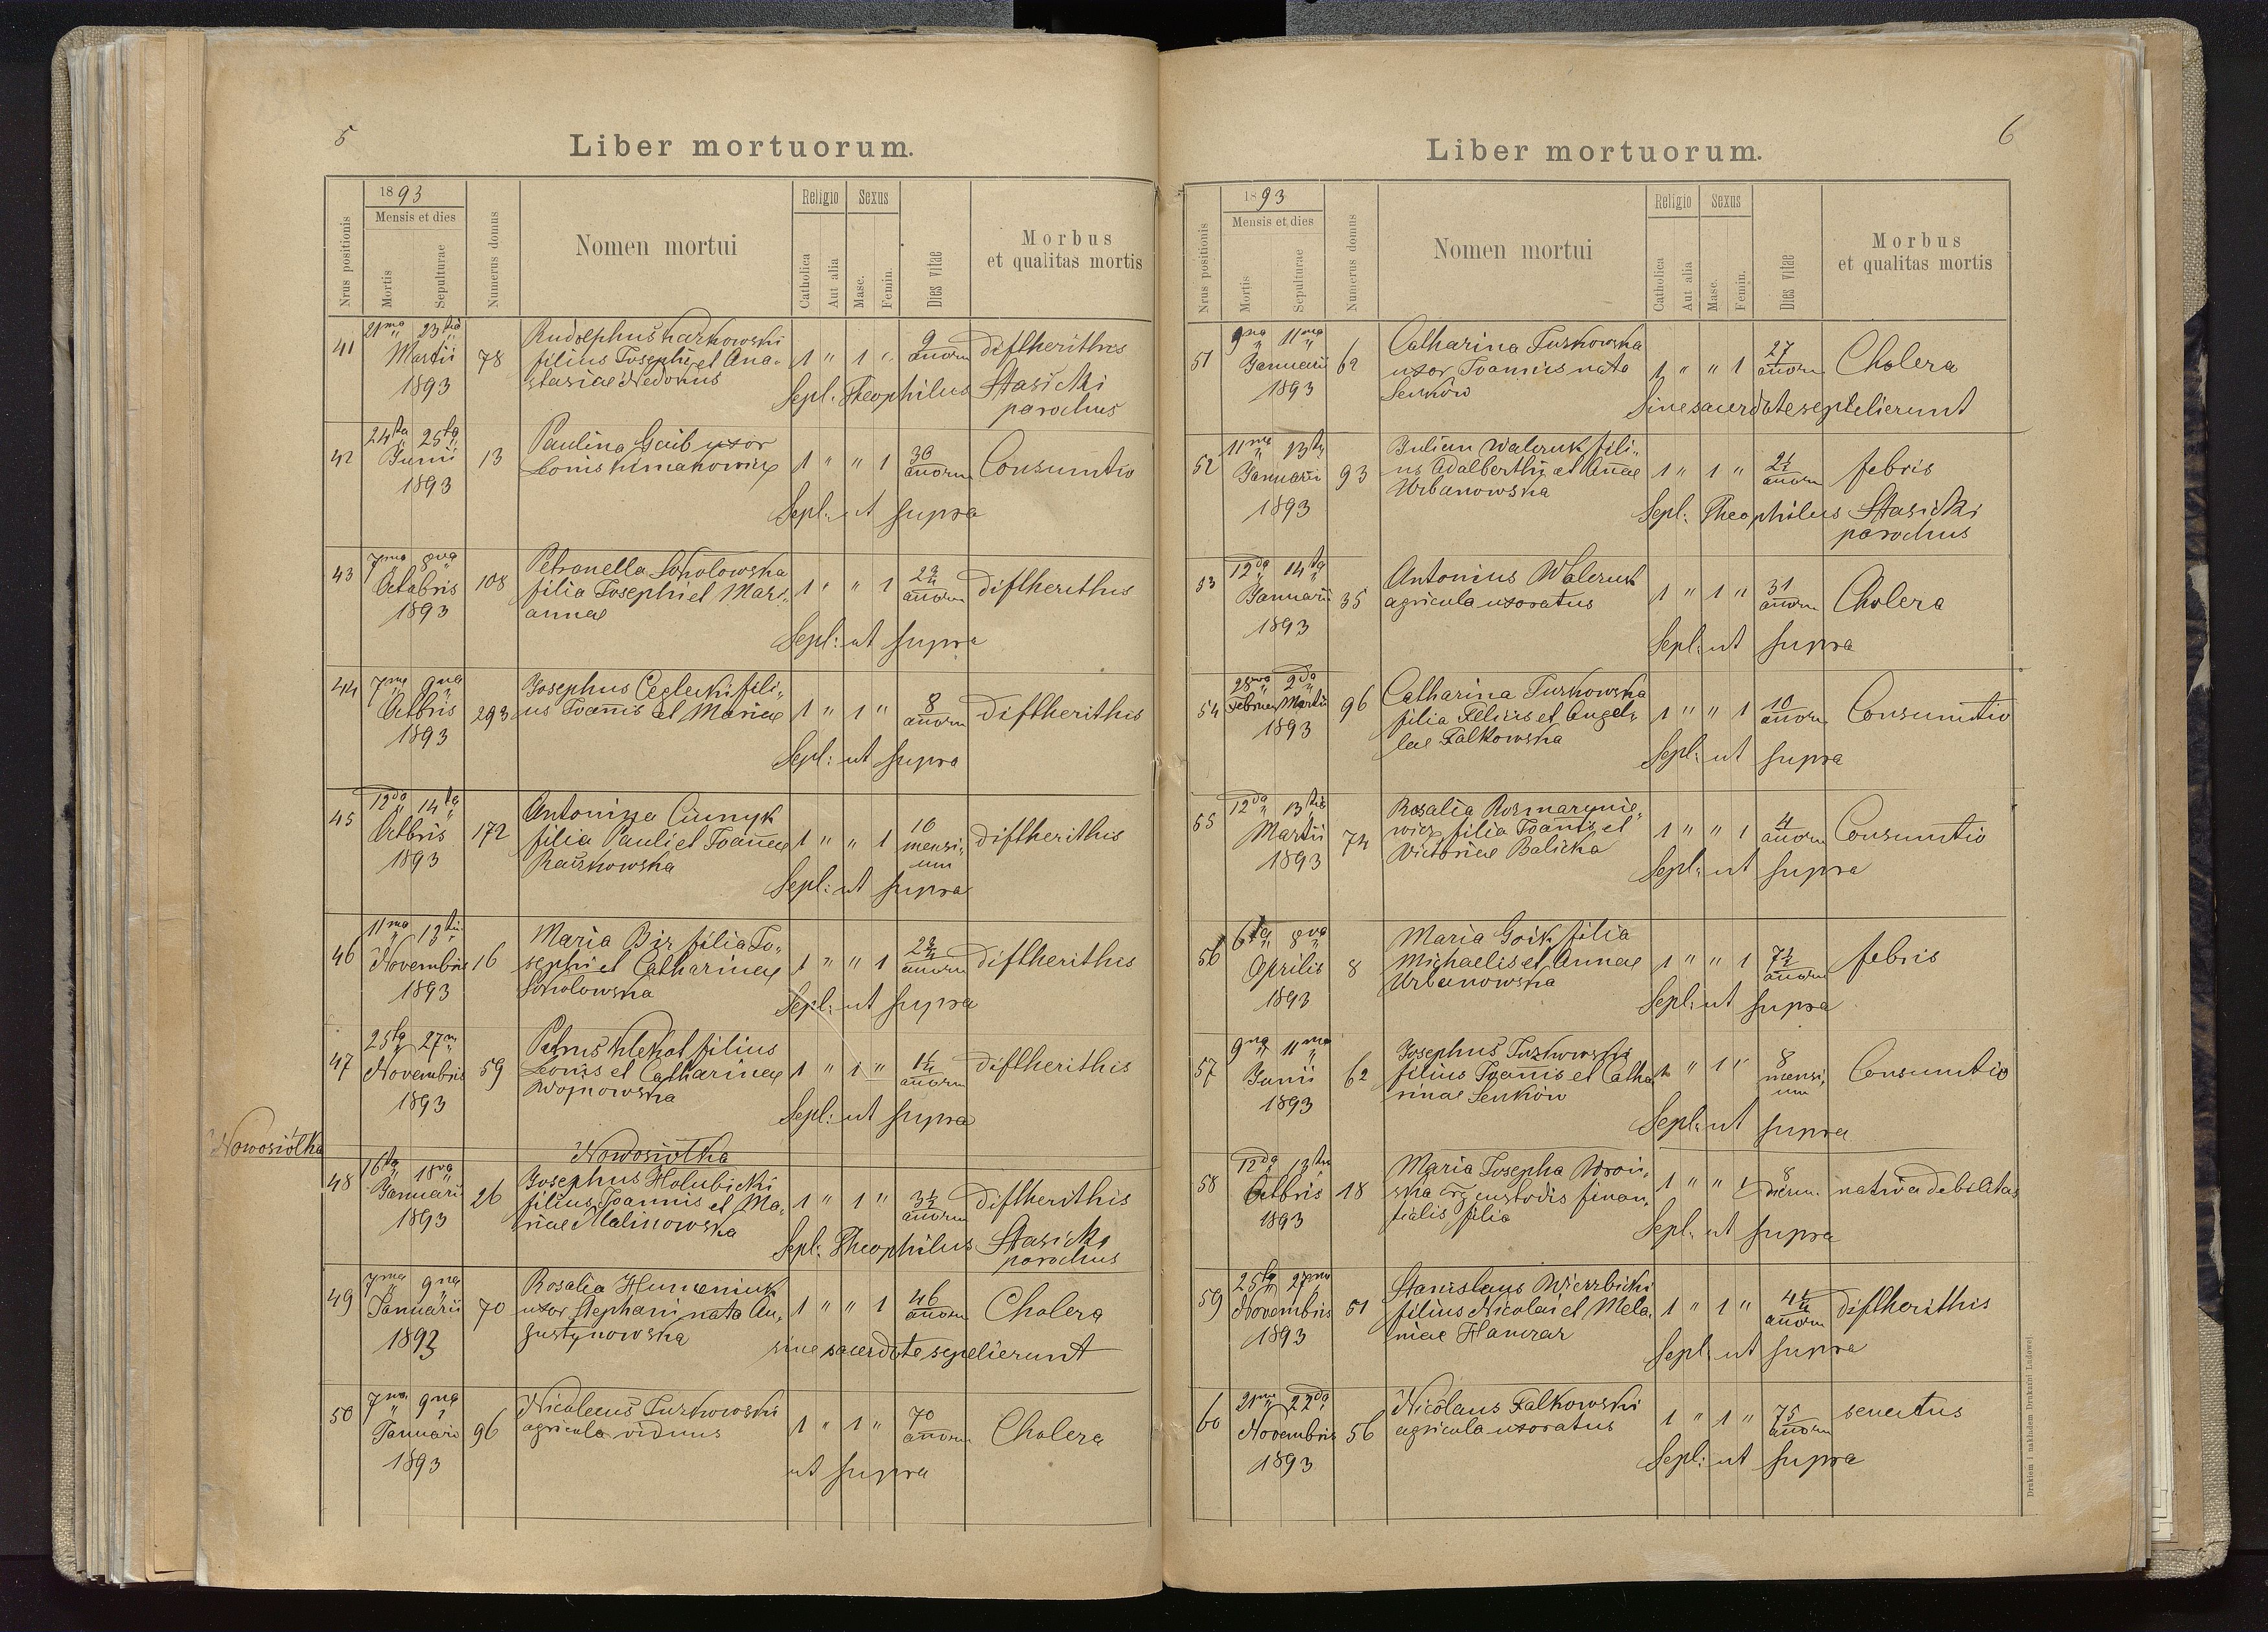 5
Liber mortuorum.
Nrus positionis
1893
Mensis et dies
Mortis
Sepulturae
Numerus domus
Nomen mortui
Religio
Catholica
Aut alia
Sexus
Masc.
Femin.
Dies vitae
Morbus
et qualitas mortis
41
21ma 23tia
Martii
1893
78
Rudolphus Karkowski
filius Josephi et Ana-
stasiae Nedokus
1 " 1 "
9
annorum
diftherithis
Sepl: Theophilus Stasicki
parochus
42
24ta 25ta
Junii
1893
13
Paulina Gaib uxor
Leonis Kimakowicz
1 " " 1
30
annorum
Consumtio
Sepl: ut supra
43
7ma 8va
Octobris
1893
108
Petronella Sokolowska
filia Josephi et Mari-
annae
1 " " 1
2 3/4
annorum
diftherithis
Sepl: ut supra
44
7ma 9na
Octbris
1893
293
Josephus Cegleckifili-
us Joannis et Mariae
1 " 1 "
8
annorum
diftherithis
Sepl: ut supra
45
12da 14ta
Octbris
1893
172
Antonina
filia Pauli et Joannae
Raszkowska
1 " " 1
10
mensi-
um
diftherithis
Sepl: ut supra
46
11ma 13tia
Novembris
1893
16
Maria Bir filia Jo-
sephi et Catharinae
Sokolowska
1 " " 1
annorum
diftherithis
Sepl: ut supra
47
25ta 27ma
Novembris
1893
59
Petrus Klekot filius
Leonis et Catharinae
Wojnowska
1 " 1 "
annorum
diftherithis
Sepl: ut supra
Nowosiółka
Nowosiółka
48
16ta 18va
Januarii
1893
26
Josephus Holubicki
filius Joannis et Ma-
riae Malinowska
1 " 1 "
3 1/2
annorum
diftherithis
Sepl: Theophilus Stasicki
parochus
49
7ma 9na
Januarii
1893
70
Rosalia Humeniuk
uxor Stephani nata Au-
gustynowska
1 " " 1
46
annorum
Cholera
sine sacerdote sepelierunt
50
7ma 9na
Januarii
1893
96
Nicolaus Turkowski
agricola viduus
1 " 1 "
70
annorum
Cholera
ut supra
6
Liber mortuorum.
Nrus positionis
1893
Mensis et dies
Mortis
Sepulturae
Numerus domus
Nomen mortui
Religio
Catholica
Aut alia
Sexus
Masc.
Femin.
Dies vitae
Morbus
et qualitas mortis
51
9na 11ma
Januarii
1893
62
Catharina Turkowska
uxor Joannis nata
Senków
1 " " 1
27
annorum
Cholera
Sine sacerdote sepelierunt
52
11ma 13tia
Januarii
1893
93
Julian Walczuk fili-
us Adalberthi et Annae
Urbanowska
1 " 1 "
2 1/2
annorum
febris
Sepl: Theophilus Stasicki
parochus
53
12da 14ta
Januarii
1893
35
Antonius Walczuk
agricola uxoratus
1 " 1 "
31
annorum
Cholera
Sepl: ut supra
54
28va 2da
Februar Martii
1893
96
Catharina Turkowska
filia Felicis et Angel-
lae Falkowska
1 " " 1
10
annorum
Consumtio
Sepl: ut supra
55
12da 13tia
Martii
1893
Rosalia Rosmarynie-
wicz filia Joannis et
Victoriae Balicka
1 " " 1
4
annorum
Consumtio
Sepl: ut supra
56
6ta 8va
Aprilis
1893
8
Maria Goik filia
Michaelis et Annae
Urbanowska
1 " " 1
7 1/2
annorum
febris
Sepl: ut supra
57
9na 11ma
Junii
1893
62
Josephus Turkowski
filius Joannis et Catha-
rinae Senków
1 " 1 "
8
mensi-
um
Consumtio
Sepl: ut supra
58
12da 13tia
Octbris
1893
18
Maria Josepha Wroń-
ska custodis finan-
tialis filia
1 " " 1
8
dierum
nativa debilitas
Sepl: ut supra
59
25ta 27ma
Novembris
1893
51
Stanislaus Wierzbicki
filius Nicolai et Mela-
niae Hanczar
1 " 1 "
annorum
diftherithis
Sepl: ut supra
60
21ma 22da
Novembris
1893
56
Nicolaus Falkowski
agricola uxoratus
1 " 1 "
75
annorum
senectus
Sepl: ut supra
Drukiem i nakładem Drukarni Ludowej